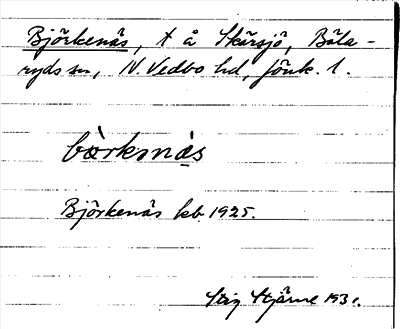 Björkenäs, t å Skärsjö, Båla-
ryds sn, N. Vedbo hd, Jönk. l.
bö̀rknäs
Björkenäs kb. 1925.
Stig Stjärne 1931.